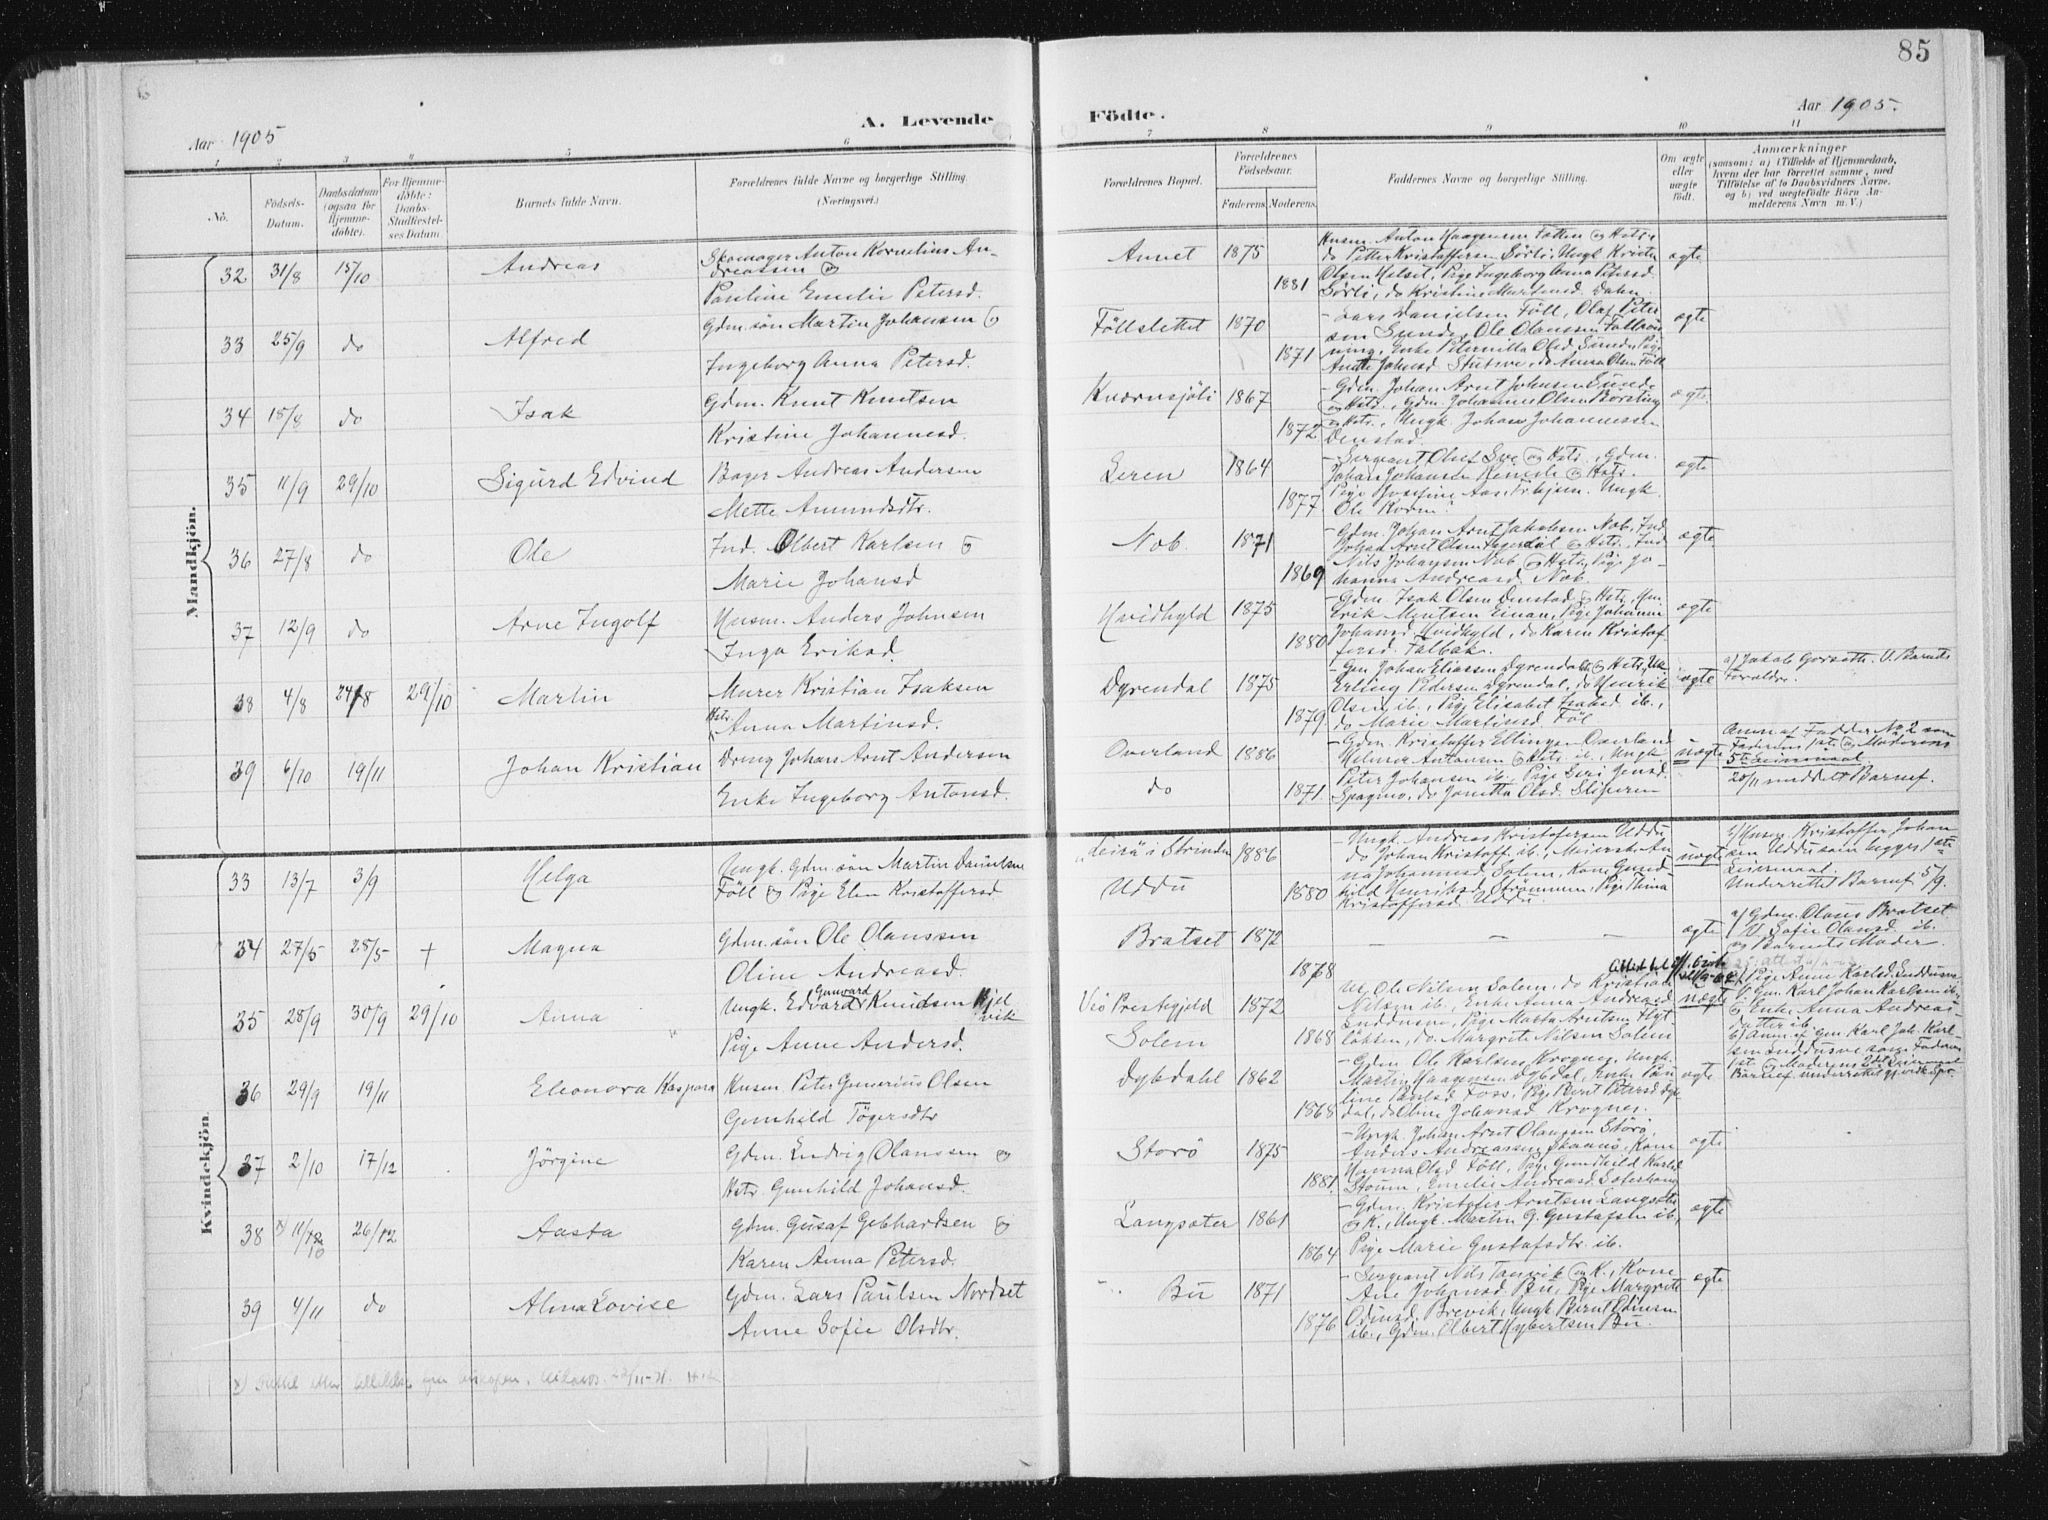 85
Aar 1905
A. Levende
Födte.
Aar 1905.
1 2 3 4 5 6 7 8 9 10 11
No.
Födsels-Datum.
Daabsdatum (ogsaa for Hjemmedöbte).
For Hjemmedöbte: Daabs-Stadfæstelses Datum
Barnets fulde Navn.
Forældrenes fulde Navne og borgerlige Stilling.
(Næringsvei.)
Forældrenes Bopæl.
Forældrenes Födselsaar.
Faderens. Moderens.
Faddernes Navne og borgerlige Stilling.
Om ægte eller uægte födt.
Anmærkninger
(saasom: a) i Tilfælde af Hjemmedaab, hvem der har forrettet samme, med Tilföielse af to Daabsvidners Navne, og b) ved uægtefödte Börn Anmelderens Navn m. V.)
Mandkjön.
32 31/8 15/10 Andreas
Skomager Anton Kornelius Andreassen og
Pauline Emelie Petersd.
Annet 1875 1881
Husm. Anton Haagensen Fætten og Hstr.
do Petter Kristoffersen Sörli, Ungk. Kristen
Olsen Helset, Pige Ingeborg Anna Petersd.
Sörli, do Kristine Martinsd. Dahn
ægte
33 25/9 do Alfred
Gdm. sön Martin Johansen og
Ingeborg Anna Petersd.
Föllslettet 1870 1871
Lars Danielsen Föll, Olaf Petersen Sunde, Ole Olaussen
Enke Peternilla Olsd. Sunde, Pige
do Anna Olsen Föll
ægte
34 15/8 do Isak
Gdm. Knut Knutsen
Kristine Johannesd.
Kværnsjöli 1867 1872
Gdm. Johan Arnt Johnsen Sunde
og Hstr., Gdm. Johannes Olsen Börsting
og Hstr., Ungk. Johan Johannessen
Denstad.
ægte
35 11/9 29/10 Sigurd Edvind
Bager Andreas Andersen
Mette Amundsdtr.
Leren 1864 1877
Sergeant Oluf Sve og Hstr., Gdm.
Johan Johansen og Hstr.
Pige Josefine Ungk.
Ole
ægte
36 27/8 do Ole
Ind. Olbert Karlsen og
Marie Johansd
Nob. 1871 1869
Gdm. Johan Arnt Jakobsen Nob, Ind.
Johan Arnt Olsen og Hstr., Ind
Nils Johansen Nob og Hstr., Pige Johanna Andreasd. Nob.
ægte
37 12/9 do Arne Ingolf
Husm. Anders Johnsen
Inga Eriksd.
Hvidhyld 1875 1880
Gdm. Isak Olsen Denstad og Hstr., Gm.
Erik Myntsen Einan, Pige Johanna
Johansd. Hvidhyld, do Karen Kristoffersd. Falbæk.
ægte
38 4/8 24/8 29/10 Martin
Murer Kristian Isaksen
Hstr. Anna Martinsd.
Dyrendal 1875 1879
Gm. Johan Eliassen Dyrendal og Hstr., Uk.
Erling Pedersen Dyrendal, do Henrik
Olsen ib., Pige Elisabet Isaksd. ib.,
do Marie Martinsd. Föl
ægte
a) Jakob Gorseth. V. Barnets
Forældre.
39 6/10 19/11 Johan Kristian
Dreng Johan Arnt Andersen
Enke Ingeborg Antonsd.
Overland 1886
do 1871
Gdm. Kristoffer Ellingsen Overland
Helmer Antonsen og Hstr. ib., Ungk.
Peter Johansen ib., Pige Siri Jensd.
Spagmo, do Jonetta Olsd. Slisperen
uægte
Anm. af Fadder No 2 som
Faderens 1ste og Moderens
5te Leiermaal
20/11 meddelt Barnef.
Kvindekjön
33 13/7 3/9 Helga
Ungk. Gdm. sön Martin Danielsen
Föll og Pige Elen Kristoffersd.
Leira i Strinden 1886
Uddu 1880
Ungk. Andreas Kristofersen Uddu
do Johan Kristoff. ib., Meiersk. Anna Johannesd. Solem, Kone Gundhild Henriksd. Strömmen, Pige Thina
Kristoffersd. Uddu
uægte
b) Husm. Kristoffer Johansen Uddu som begges 1ste
Leiermaal.
Underrettet Barnef. 5/9.
34 27/5 28/5 + Magna
Gdm. sön Ole Olaussen
Oline Andreasd.
Bratset 1872 1878
— — —
ægte
a) Gdm. Olaus Bratset
V. Sofie Olausd. ib.
og Barnets Moder.
35 28/9 30/9 29/10 Anna
Ungk. Edvard Gunvard Knudsen Kjelvik
Pige Anne Andersd.
Vio Prestegjeld 1872
Solem 1868
Uk. Ole Nilsen Solem, do Kristian
Nilsen ib., Enke Anna Andreasd.
Snudusve, Pige Marta Arntsen
do. Margrete Nilsen Solem
uægte
a) Pige Anne Karlsd. Snudusve
V. Gm. Karl Johan Karlsen ib.
og Enke Anna Andreasdatter ib.
b) Anm. ib. gm. Karl Joh. Karlsen Snudusve som Faderens
1ste og Moderens 2det Leiermaal
Barnef. underrettet
36 29/9 19/11 Eleonora Kaspara
Husm. Peter Gunerius Olsen
Gunhild Tögersdtr
Dybdahl 1862 1868
Gdm. Ole Karlsen Krognes, Ungk.
Martin Haagensen Dybdal, Enke Pauline Paulsd. Foss, Pige Berit Petersd. Dybdal, do Oline Johansd. Krognes.
ægte
37 2/10 17/12 Jörgine
Gdm. Ludvig Olaussen og
Hstr. Gunhild Johansd.
Storö 1875 1881
Ungk. Johan Arnt Olaussen Storö,
Anders Andreassen Skaanö, Kone
Hanna Olsd. Föll, Pige Gundhild Karlsd.
Stoum, Emelie Andreasd.
ægte
38 x) 11/12 10 26/12 Aasta
Gdm. Gusaf Gebhardsen og
Karen Anna Petersd.
Langsæter 1861 1864
Gdm. Kristofer Arntsen Langsæter
og K., Ungk. Martin G. Gustafsen ib.,
Pige Marie Gustafsdtr. ib.
ægte
39 4/11 do Alma Lovise
Gdm. Lars Paulsen Nordset
Anne Sofie Olsdtr.
Bu 1871 1876
Sergeant Nils Tanvik og K., Kone
Ane Johansd. Bu, Pige Margrete
Odinsd. Brevik, Ungk. Bernt Odinsen
ib., Gdm. Olbert Hybertsen Bu.
ægte
x)